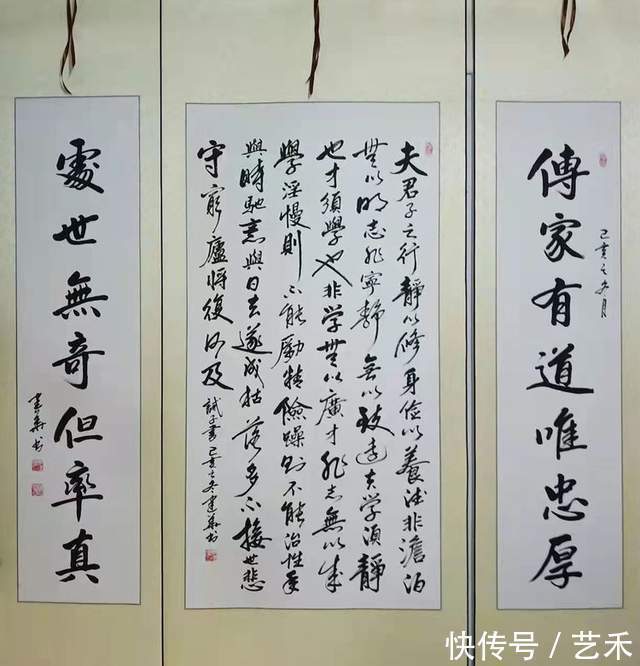 傳家有道唯忠厚
己亥之冬月
夫君子之行靜以修身俭以養德非澹泊
無以明志非寧靜無以致遠夫学須靜
也才須學也非学無以廣才非志無以成
學淫慢則不能勵精險躁則不能治性年
與時馳意與日去遂成枯落多不接世悲
守窮廬將復何及
誡子書己亥之冬建華书
處世無奇但率真
建華书
快传号 / 艺禾